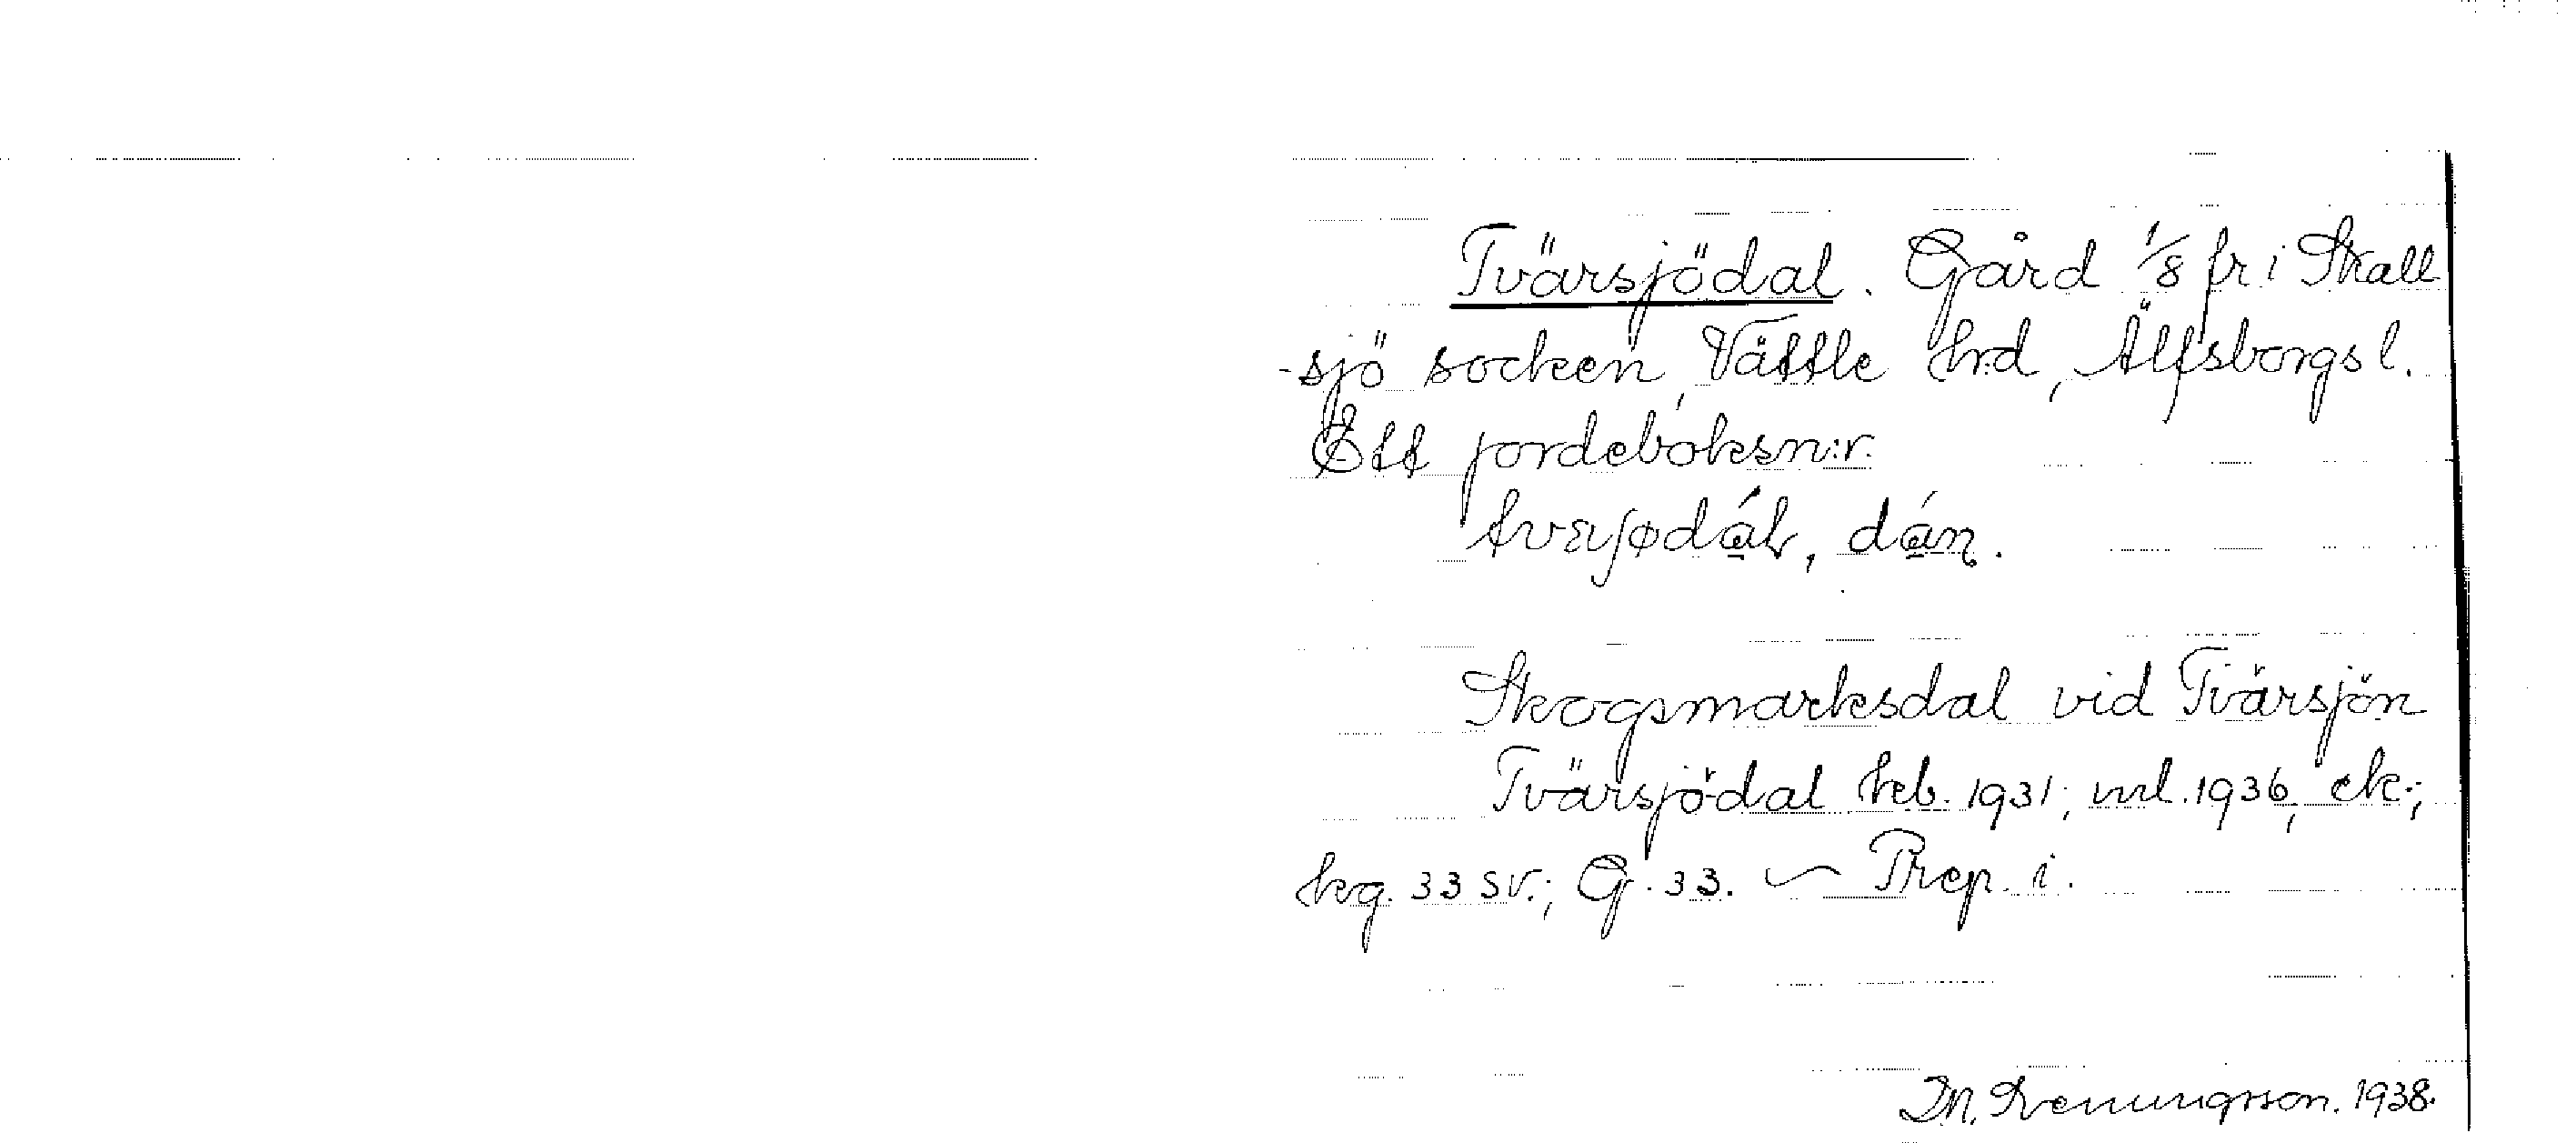 Tvärsjödal. Gård 1/8 fr i Skall
-sjö socken, Vättle hrd, Älfsborgs l.
Ett jordeboksn:r.
dán.
Skogsmarksdal vid Tvärsjön
Tvärsjödal keb. 1931; vrl. 1936, ek.;
kg. 33 SV.; G. 33. ~ Prep. i.
1938.